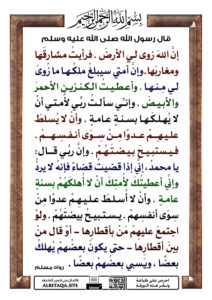 بسم الله الرحمن الرحيم
قال رسول الله صلى الله عليه وسلم
إن الله زوى لي الأرض . فرأيت مشارقها
ومغاربها . وإن أمتي سيبلغ ملكها ما زوى
لي منها . وأعطيت الكنزين الأحمر
والأبيض . وإني سألت ربي لأمتي أن
لا يهلكها بسنة عامة . وأن لا يسلط
عليهم عدوا من سوى أنفسهم .
فيستبيح بيضتهم . وإن ربي قال :
يا محمد، إني إذا قضيت قضاء فإنه لا يرد
وإني أعطيتك لأمتك أن لا أهلكهم بسنة
عامة . وأن لا أسلط عليهم عدوا من
سوى أنفسهم . يستبيح بيضتهم . ولو
اجتمع عليهم من بأقطارها - أو قال من
بين أقطارها - حتى يكون بعضهم يهلك
بعضا ، ويسبي بعضهم بعضا .
رواه مسلم
ALBETAQA.SITE
احرص على طباعة
ونشر هذه الورقة